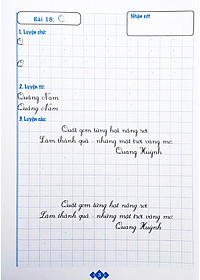 Bài 18: Q
Nhận xét
1. Luyện chữ:
Q
Q
2. Luyện từ:
Quảng Nam
Quảng Nam
3. Luyện câu:
Quét gom từng hạt nắng rơi
Làm thành quả - những mặt trời vàng mơ.
Quang Huỳnh
Quét gom từng hạt nắng rơi
Làm thành quả - những mặt trời vàng mơ.
Quang Huỳnh